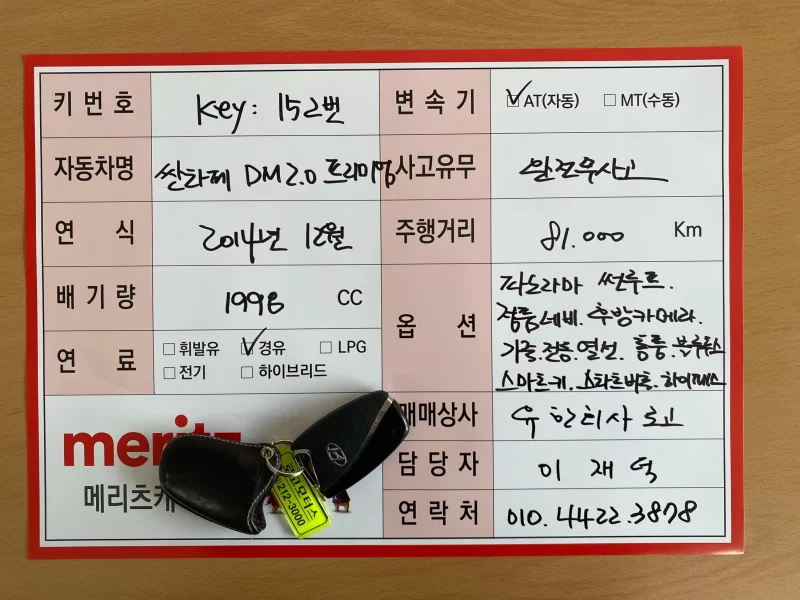 키 번 호 Key: 152번 변 속 기 ☑ AT(자동) ☐ MT(수동)
자동차명 싼타페 DM 2.0 프리미엄 사고유무 완전무사고
연 식 2014년 12월 주행거리 81.000 Km
배 기 량 1998 CC 옵 션 파노라마 썬루프.
정품네비. 후방카메라.
가죽.전동.열선. 통풍. 블루투스
스마트키. 스타트버튼. 하이패스
연 료 ☐ 휘발유 ☑ 경유 ☐ LPG
☐ 전기 ☐ 하이브리드
meritz
메리츠캐
매매상사 유한회사 로고
담 당 자 이 재 덕
연 락 처 010.4422.3878
모터스
212-3000